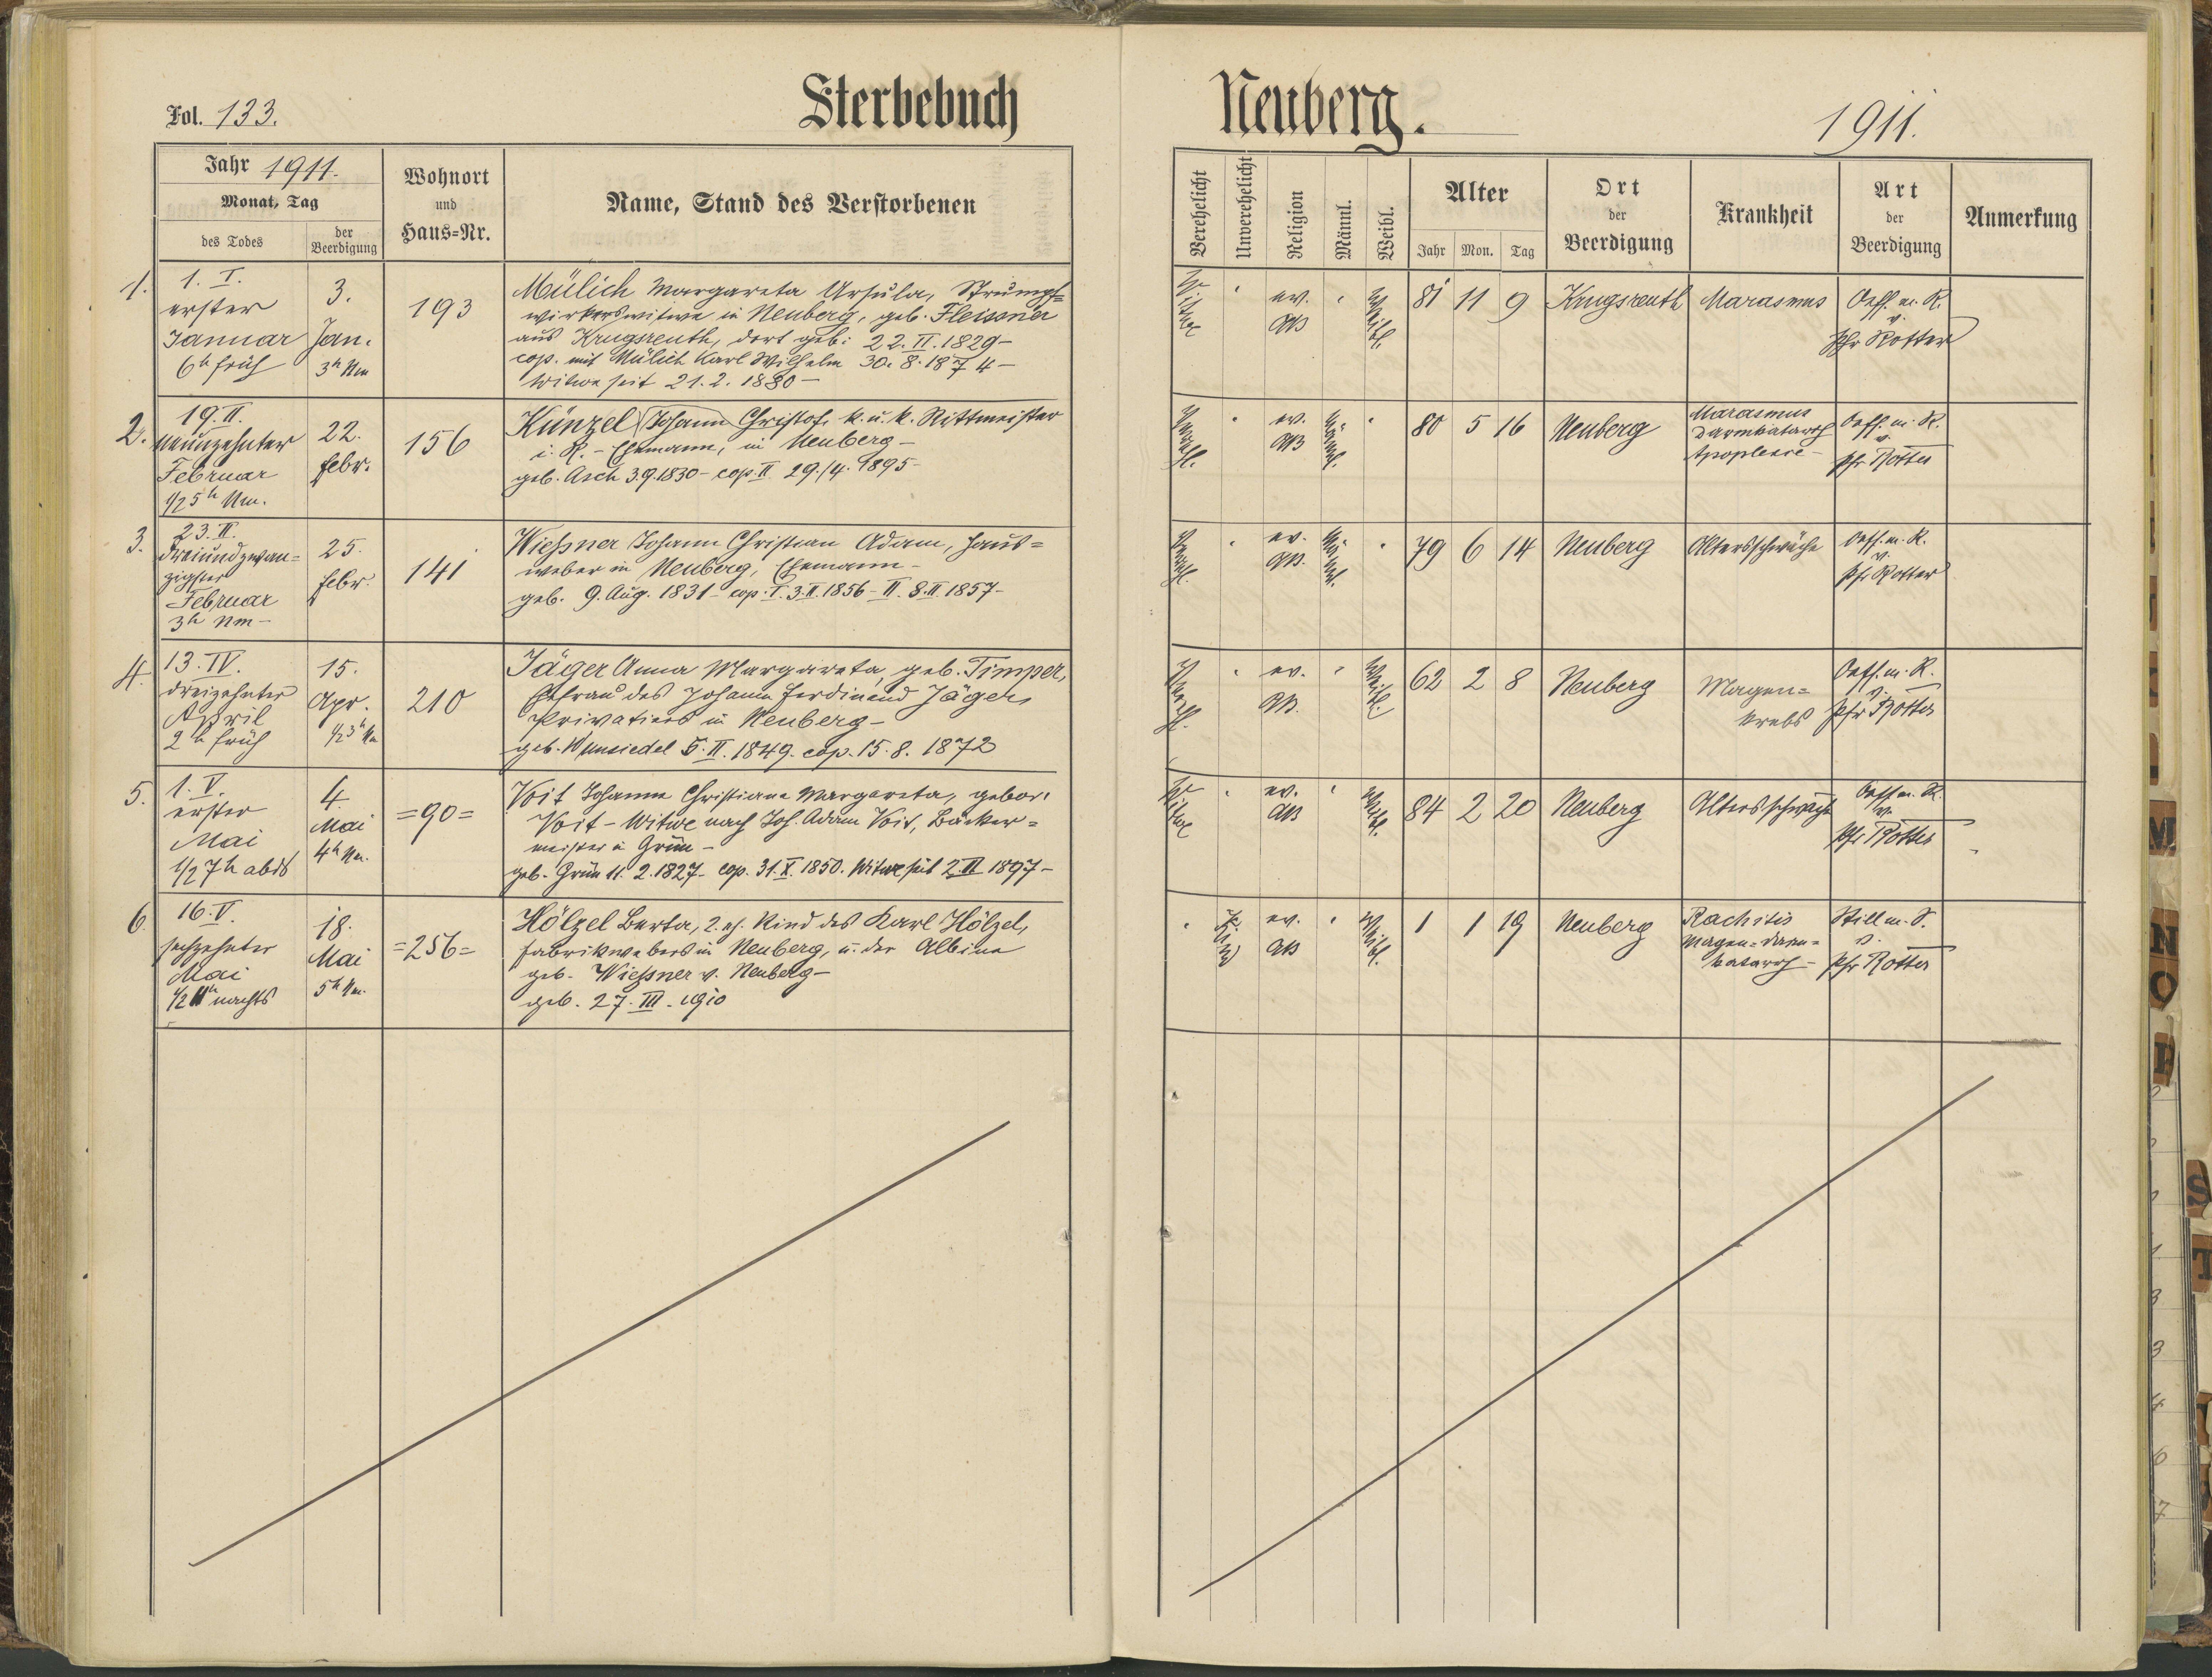 Fol. 133.
Sterbebuch
Jahr 1911.
Monat, Tag
des Todes
der Beerdigung
Wohnort
und
Haus=Nr.
Name, Stand des Verstorbenen
1.
1. I.
erster
Januar
6h früh
3.
Jan.
3h Nm
193
Mülich Margareta Ursula, Strumpf=
wirkerswitwe in Neuberg, geb. Fleissner
aus Krugsreuth, dort geb: 22. II. 1829-
cop. mit Mülich Karl Wilhelm 30. 8. 1874-
Witwe seit 21. 2. 1880-
2.
19. II.
neunzehnter
Februar
1/2 5h Nm.
22.
febr.
156
Künzel Johann Christof, k. u. k. Rittmeister
i. R. - Ehemann, in Neuberg-
geb. Asch 3.9.1830- cop. II 29./4. 1895-
3.
23. II.
dreiundzwan=
zigster
Februar
3h Nm-
25.
febr.
141
Wießner Johann Christian Adam, Haus=
weber in Neuberg, Ehemann-
geb. 9. Aug. 1831- cop. I. 3. II. 1856- II. 8. II. 1857-
4.
13. IV.
dreizehnter
April
2h früh
15.
Apr.
1/2 3h Nm
210
Jäger Anna Margareta, geb. Timper,
Ehefrau des Johann Ferdinand Jäger,
Privatiers in Neuberg-
geb. Wunsiedel 5. II. 1849. cop. 15. 8. 1872
5.
1. V.
erster
Mai
1/2 7h abds
4.
Mai
4h Nm.
=90=
Voit Johanna Christiane Margareta, gebor.
Voit - Witwe nach Joh. Adam Voit, Bäcker=
meister in Grün-
geb. Grün 11. 2. 1827- cop. 31. X. 1850. Witwe seit 2. II 1897-
6.
16. V.
sechzehnter
Mai
1/2 11h nachts
18.
Mai
5h Nm.
=256=
Hölzel Berta, 2. eh. Kind des Karl Hölzel,
Fabrikwebers in Neuberg, u. der Albine
geb. Wießner v. Neuberg-
geb. 27. III. 1910
Neuberg.
1911.
Verehelicht
Unverehelicht
Religion
Männl.
Weibl.
Alter
Jahr
Mon.
Tag
Ort
der
Beerdigung
Krankheit
Art
der
Beerdigung
Anmerkung
Witwe
ev.
AB
Weibl.
81 11 9
Krugsreuth
Marasmus
Oeff. m. R.
v.
Pfr Rotter
Verehl.
ev.
AB
Männl.
80 5 16
Neuberg
Marasmus
Darmkatarrh
Apoplexie-
Oeff. m. R.
v.
Pfr Rotter
Verehl.
ev.
AB.
Männl.
79 6 14
Neuberg
Altersschwäche
Oeff. m. R.
v.
Pfr Rotter
Verehl.
ev.
AB.
Weibl.
62 2 8
Neuberg
Magen=
krebs
Oeff. m. R.
v.
Pfr Rotter
Witwe
ev.
AB
Weibl.
84 2 20
Neuberg
Altersschwäche
Oeff m. R.
v.
Pfr Rotter
Kind
ev.
AB
Weibl.
1 1 19
Neuberg
Rachitis
Magen=Darm=
katarrh-
Still m. S.
v.
Pfr Rotter
M
N
O
P
S
T